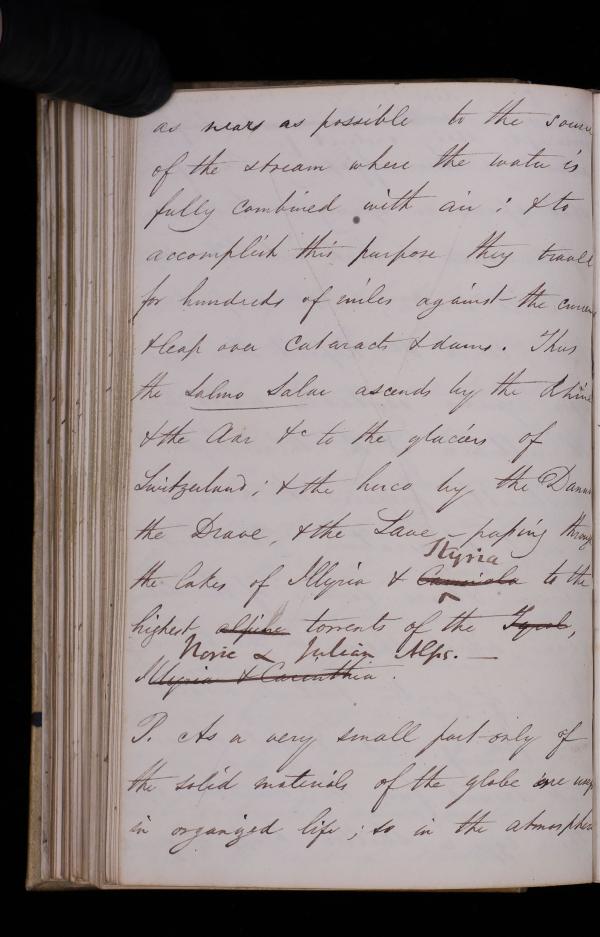 as near as possible to the source
of the stream where the water is
fully combined with air; & to
accomplish this purpose they travel
for hundreds of miles against the
& leap over cataracts & dams. Thus
the Salmo Salar ascends by the Rhine
& the Aar &c to the glaciers of
Switzerland; & the huco by the
the Drave, & the Save - passing through
Styria
the lakes of Illyria & Carniola to the
highest alpine torrents of the Tyrol,
Noric & Julian Alps. —
Illyria & Carinthia.
P. As a very small part only of
the solid materials of the globe are
in organized life; so in the atmosphere